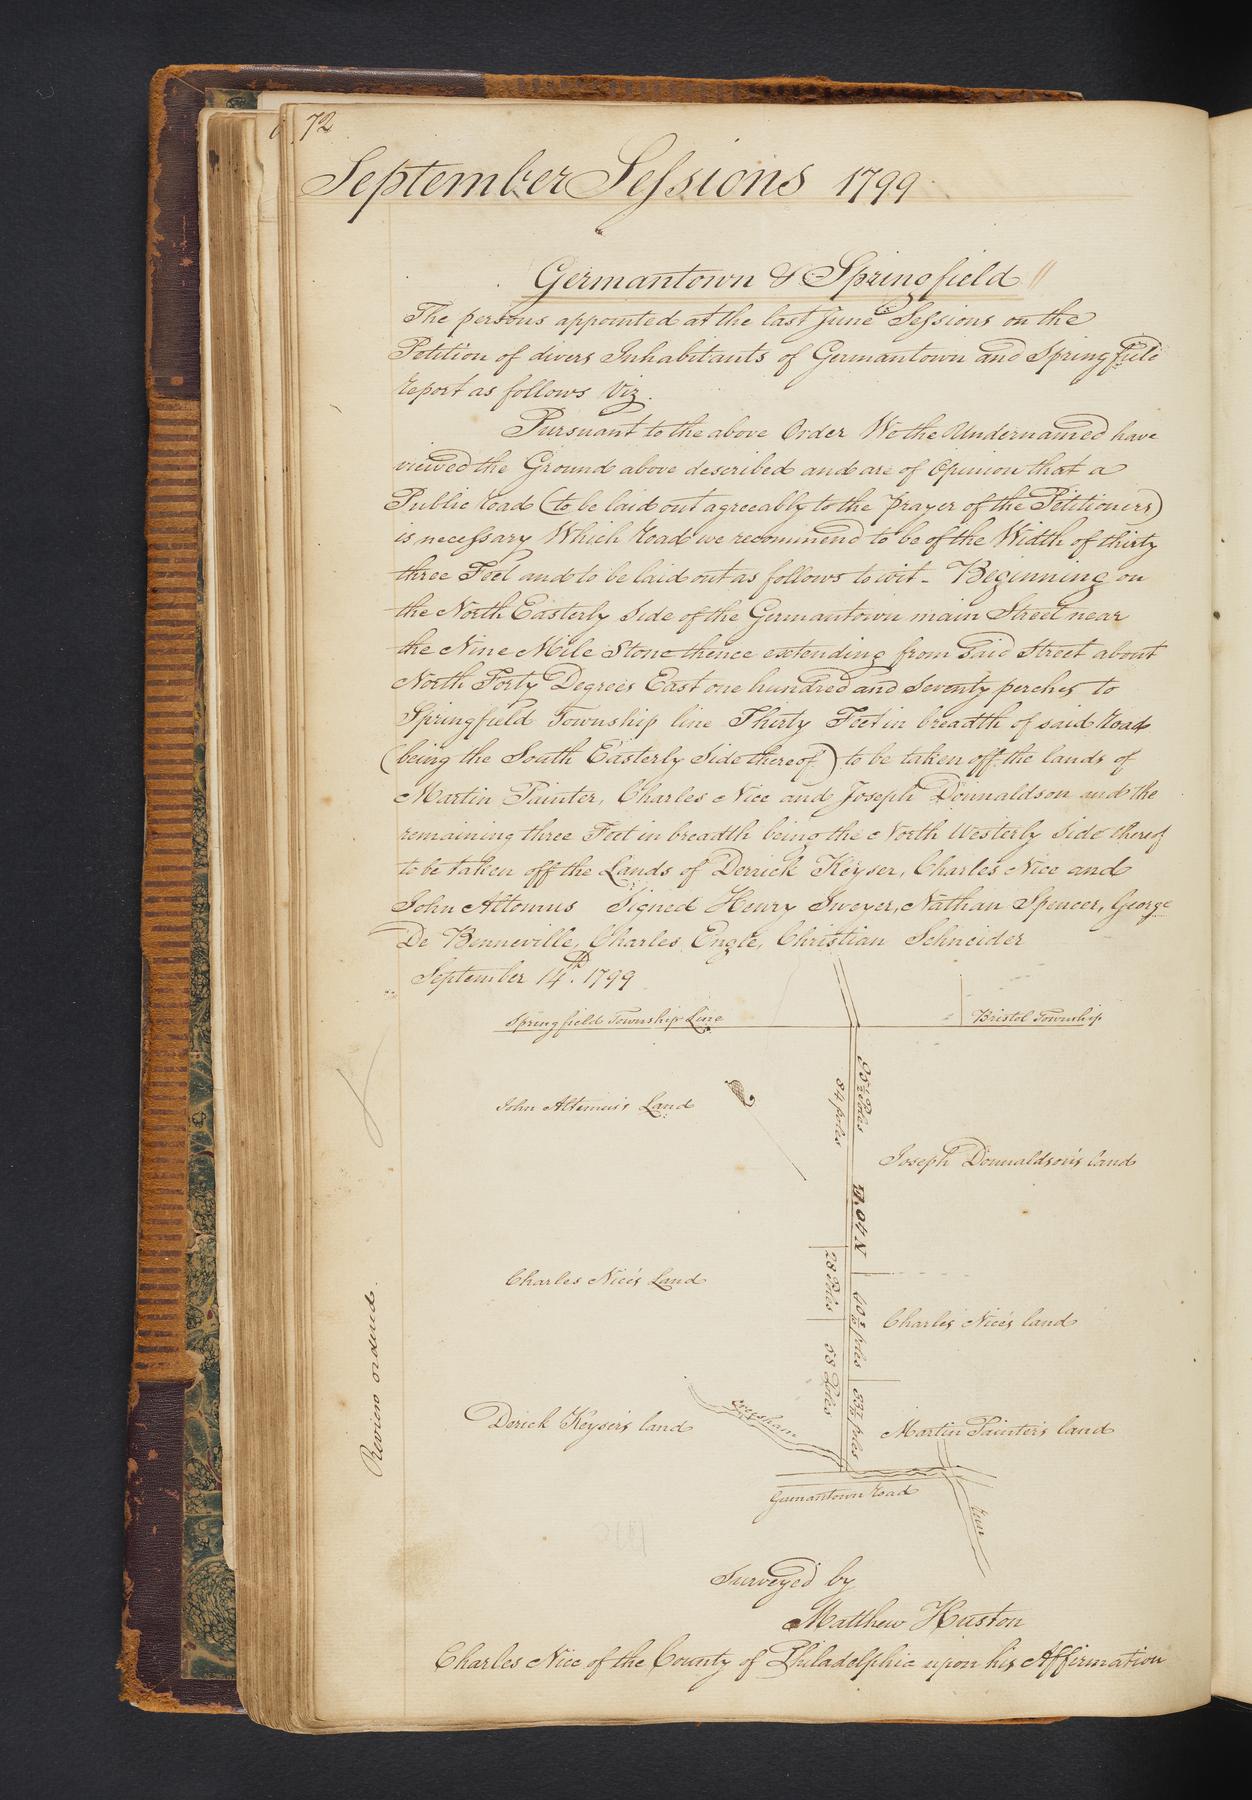 72
September Sessions 1799
Germantown & Springfield
The persons appointed at the last June Sessions on the
Petition of divers Inhabitants of Germantown and Springfield
report as follows Viz.
Pursuant to the above Order We the Undernamed have
viewed the Ground above described and are of Opinion that a
Public Road (to be laid out agreeably to the prayer of the Petitioners)
is necessary Which Road we recommend to be of the Width of thirty
three Feet and to be laid out as follows to wit - Beginning on
the North Easterly Side of the Germantown main Street near
the Nine Mile Stone thence extending from said Street about
North Forty Degrees East one hundred and Seventy perches to
Springfield Township line Thirty Feet in breadth of said Road
(being the South Easterly Side thereof) to be taken off the lands of
Martin Painter, Charles Nice and Joseph Donnaldson and the
remaining three Feet in breadth being the North Westerly Side thereof
to be taken off the Lands of Derrick Keyser, Charles Nice and
John Altomus Signed Henry Sweyer, Nathan Spencer, George
De Benneville, Charles Engle, Christian Schneider
September 14th. 1799
Springfield Township Line
Bristol Township
84 poles
John Altemus's Land
Joseph Donnaldson's land
N 40 E
28 Poles
Charles Nice's Land
40 2/10 poles
Charles Nice's land
58 Poles
Derick Keyser's land
Cresham
Martin Painter's land
Germantown Road
Run
Review ordered.
Surveyed by
Matthew Huston
Charles Nice of the County of Philadelphia upon his Affirmation